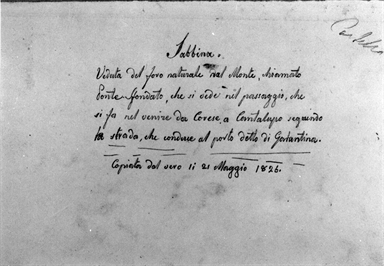 Sabbina.
Veduta del foro naturale nel Monte, chiamato
Ponte sfondato, che si vede nel passaggio, che
si fa nel venire da Corese, a Cantalupo seguendo
la strada, che conduce al porto detto di Gavantina.
Copiata dal vero li 21 Maggio 1826.